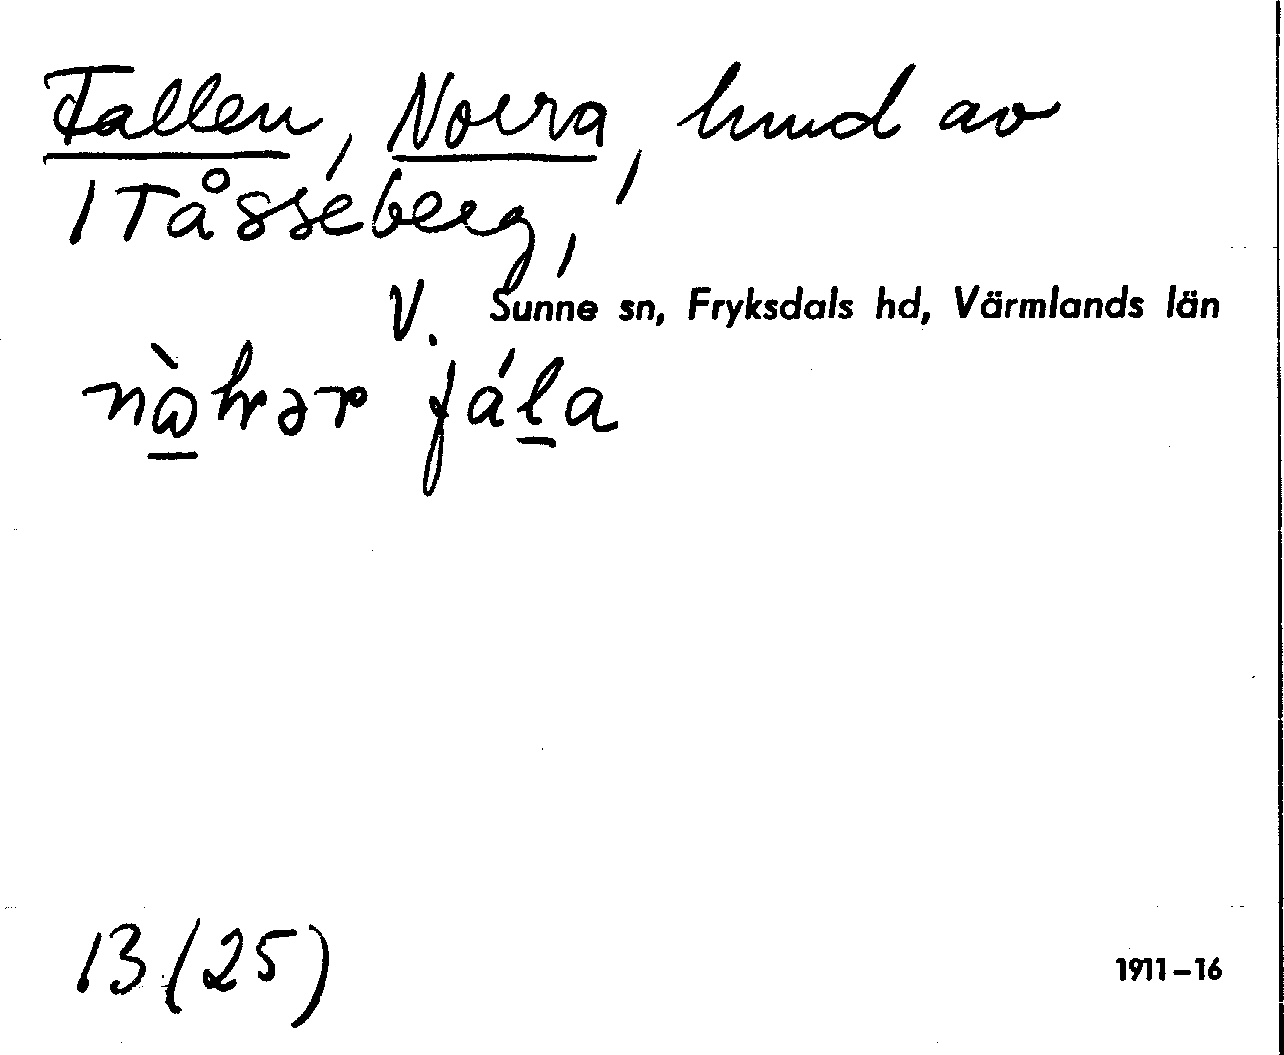 Fallen, Norra, hmd av
1 Tåsseberg,
V. Sunne sn, Fryksdals hd, Värmlands län
fála
13 (25)
1911–16